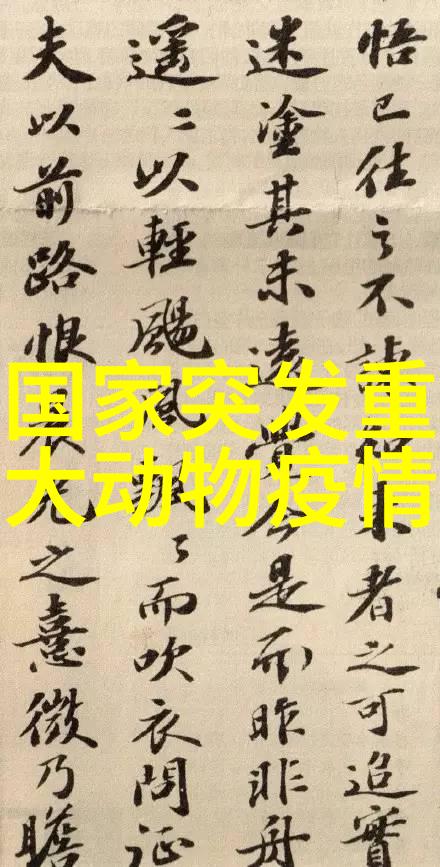 悟已往之不諫知来者之可追實
迷塗其未遠覺今是而昨非舟
遥〻以輕颺風飄〻而吹衣問征
夫以前路恨晨光之熹微乃瞻
国家突发重
大动物疫情